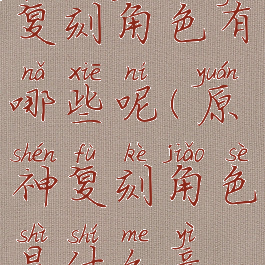 复刻角色有
nǎ xiē ni yuán
哪些呢(原
shén fù kè jiǎo sè
神复刻角色
shì shí me yì
是什么意